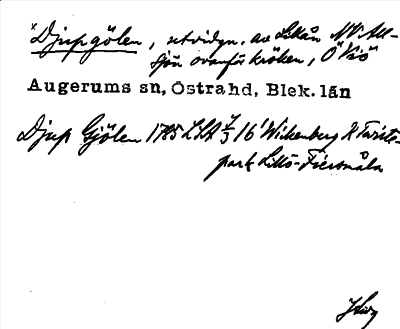 x Djupgölen, utvidgn. av Lillån NV All-
sjön ovanför kröken, Ö Viö
Augerums sn, Östra hd, Blek. län
Djup Gjölen 1785 LSA 16 Wikenberg
park Lillö-Fiersmåla